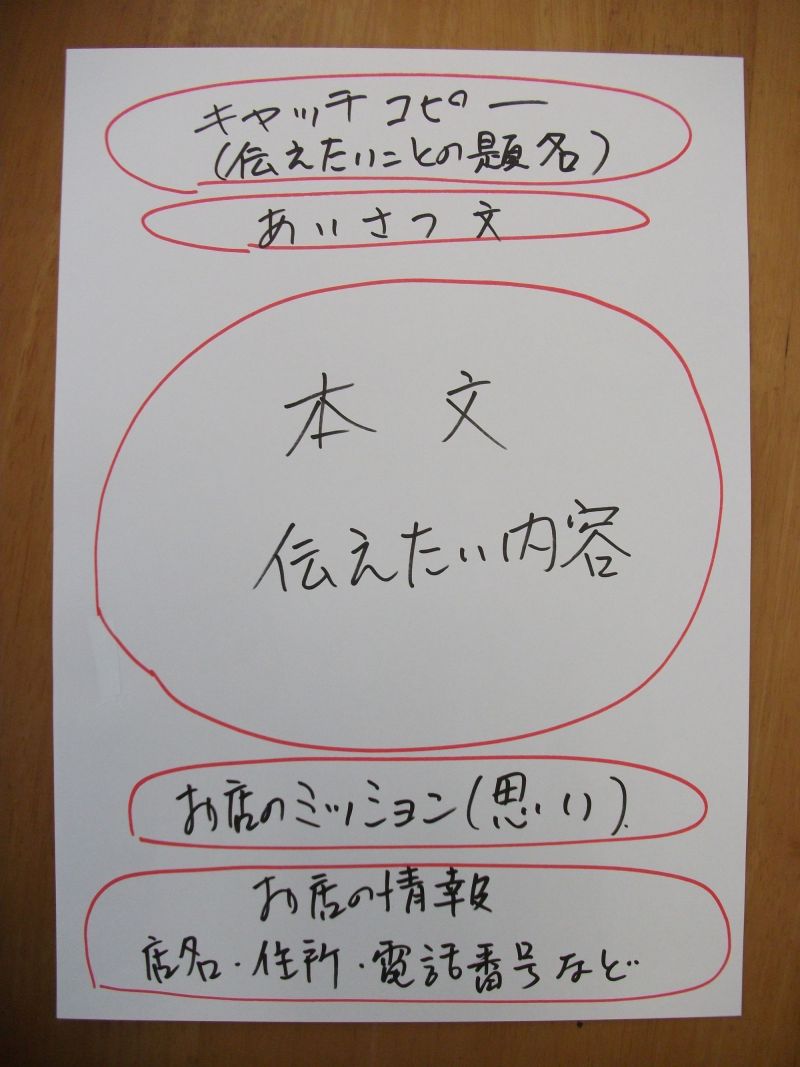 キャッチコピー
(伝えたいことの題名)
あいさつ文
本文
伝えたい内容
お店のミッション(思い)
お店の情報
店名・住所・電話番号など